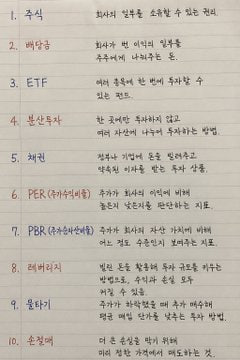 1. 주식 회사의 일부를 소유할 수 있는 권리.
2. 배당금 회사가 번 이익의 일부를
주주에게 나눠주는 돈.
3. ETF 여러 종목에 한 번에 투자할 수
있는 펀드.
4. 분산투자 한 곳에만 투자하지 않고
여러 자산에 나누어 투자하는 방법.
5. 채권 정부나 기업에 돈을 빌려주고
약속된 이자를 받는 투자 상품.
6. PER (주가수익비율) 주가가 회사의 이익에 비해
높은지 낮은지를 판단하는 지표.
7. PBR (주가순자산비율) 주가가 회사의 자산 가치에 비해
어느 정도 수준인지 보여주는 지표.
8. 레버리지 빌린 돈을 활용해 투자 규모를 키우는
방법으로, 수익과 손실 모두
커질 수 있음.
9. 물타기 주가가 하락했을 때 추가 매수해
평균 매입 단가를 낮추는 투자 방법.
10. 손절매 더 큰 손실을 막기 위해
미리 정한 가격에서 매도하는 것.